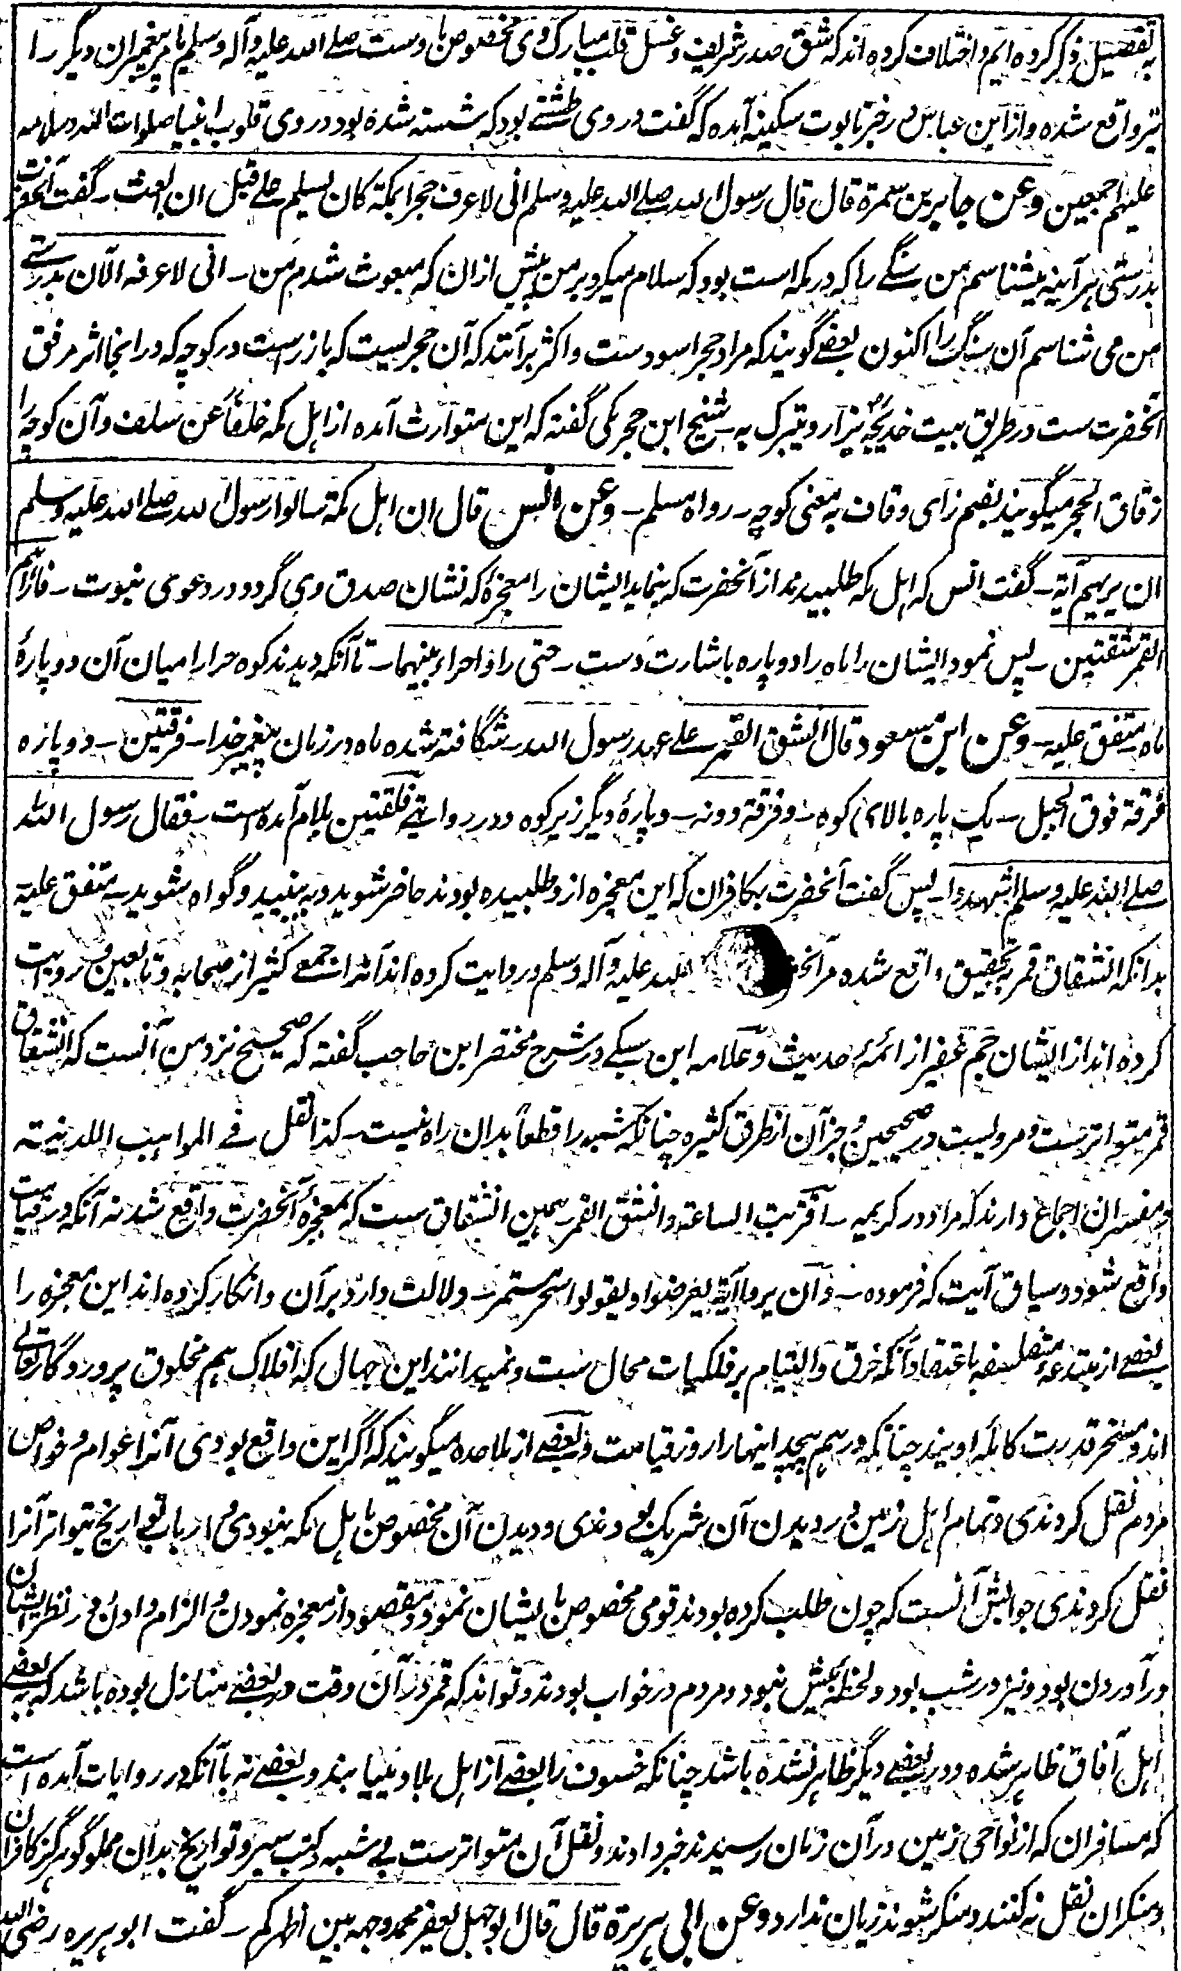 بتفصیل ذکر کرده ایم و اختلاف کرده اند که شق صدر شریف و غسل قلب مبارک وی مخصوص باوست صلے اللہ علیہ وآلہ وسلم یا مر پیغمبران دیگر را
نیز واقع شده و از ابن عباس در خبر تابوت سکینه آمده که گفت در وی طشتے بود که شسته شده بود در وی قلوب انبیا صلوات اللہ وسلامه
علیهم اجمعین وعن جابر بن سمرة قال قال رسول اللہ صلے اللہ علیہ وسلم انی لاعرف حجرا بمکة کان یسلم علے قبل ان ابعث ـ گفت آنحضرت
بدرستی هر آئینه میشناسم من سنگے را که در مکه است بود که سلام میکرد بر من پیش ازان که مبعوث شدم من ـ انی لاعرفه الآن بدرستے
من می شناسم آن سنگ را اکنون بعضے گویند که مراد حجر اسودست و اکثر برآنند که آن حجریست که بارزست در کوچه که درانجا اثر مرفق
آنحضرت ست در طریق بیت خدیجه یزار و یتبرک به ـ شیخ ابن حجر مکی گفته که این متوارث آمده از اهل مکه خلفاً عن سلف و آن کوچه را
زقاق الحجر میگویند بضم زای و قاف به معنی کوچه ـ رواه مسلم ـ وعن انس قال ان اهل مکة سالوا رسول اللہ صلے اللہ علیہ وسلم
ان یریهم آیة ـ گفت انس که اهل مکه طلبیدند از آنحضرت که بنماید ایشان را معجزهٔ که نشان صدق وی گردد در دعوی نبوت ـ فاراهم
القمر شقتین ـ پس نمود ایشان را ماه را دو پاره باشارت دست ـ حتی راوا حراء بینهما ـ تا آنکه دیدند کوه حرا را میان آن دو پارهٔ
ماه متفق علیه ـ وعن ابن مسعود قال انشق القمر علے عهد رسول اللہ ـ شگافته شده ماه در زمان پیغمبر خدا ـ فرقتین ـ دو پاره
فرقة فوق الجبل ـ یک پاره بالای کوه ـ وفرقة دونه ـ و پارهٔ دیگر زیر کوه و در روایتے فلقتین بلام آمده است ـ فقال رسول اللہ
صلے اللہ علیہ وسلم اشهدوا ـ پس گفت آنحضرت بکافران که این معجزه ازو طلبیده بودند حاضر شوید و به بینید و گواه شوید ـ متفق علیه
بدانکه انشقاق قمر به تحقیق واقع شده مر آنح اللہ علیہ وآلہ وسلم و روایت کرده اند آنرا جمعے کثیر از صحابه و تابعین و روایت
کرده اند از ایشان جم غفیر از ائمهٔ حدیث و علامه ابن سبکے در شرح مختصر ابن حاجب گفته که صحیح نزد من آنست که انشقاق
قمر متواترست و مرویست در صحیحین و جز آن از طرق کثیره چنانکه شبه را قطعاً بدان راه نیست ـ کذا نقل فے المواهب اللدنیة
و مفسران اجماع دارند که مراد در کریمه ـ اقتربت الساعة وانشق القمر ـ همین انشقاق ست که معجزهٔ آنحضرت واقع شد نه آنکه در قیامت
واقع شود و سیاق آیت که فرموده ـ وان یروا آیة یعرضوا ویقولوا سحر مستمر ـ دلالت دارد بر آن و انکار کرده اند این معجزه را
بعضے از مبتدعه متفلسفه باعتقاد آنکه خرق و التیام بر فلکیات محال ست و نمیدانند این جهال که افلاک هم مخلوق پروردگار تعالے
اند و مسخر قدرت کاملهٔ اویند چنانکه در هم پیچد اینها را روز قیامت و بعضے از ملاحده میگویند که اگر این واقع بودی آنرا عوام و خواص
مردم نقل کردندی و تمام اهل زمین در دیدن آن شریک بودندی و دیدن آن مخصوص باهل مکه نبودی و ارباب تواریخ بتواتر آنرا
نقل کردندی جوابش آنست که چون طلب کرده بودند قومی مخصوص بایشان نمود و مقصود از معجزه نمودن و الزام دادن در نظر ایشان
درآوردن بود و نیز در شب بود و لحظهٔ بیش نبود و مردم در خواب بودند و تواند که قمر در آن وقت در بعضے منازل بوده باشد که بر بعضے
اهل آفاق ظاهر شده و در بعضے دیگر ظاهر نشده باشد چنانکه خسوف را بعضے از اهل بلاد بیابند و بعضے نه با آنکه در روایات آمده است
که مسافران که از نواحی زمین درآن زمان رسیدند خبر دادند و نقل آن متواترست بے شبهه و کتب سیر و تواریخ بدان مملو گو هرگز کافران
و منکران نقل نه کنند و منکر شوند زیان ندارد وعن ابی هریرة قال قال ابو جهل یعفر محمد وجهه بین اظهرکم ـ گفت ابو هریره رضی اللہ